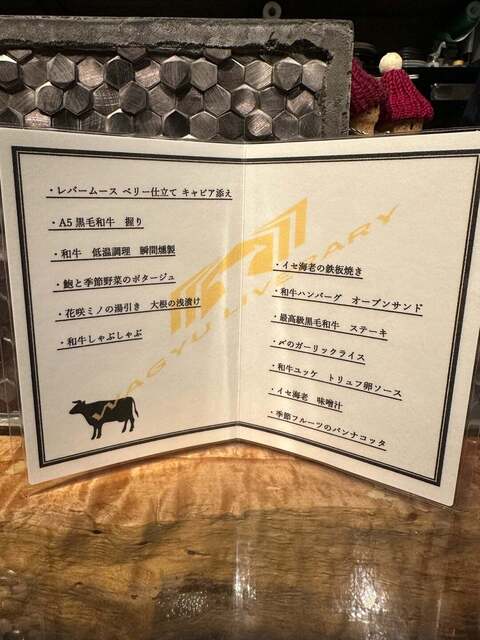 ・レバームース ベリー仕立て キャビア添え
・A5黒毛和牛 握り
・和牛 低温調理 瞬間燻製
・鮑と季節野菜のポタージュ
・花咲ミノの湯引き 大根の浅漬け
・和牛しゃぶしゃぶ
・イセ海老の鉄板焼き
・和牛ハンバーグ オープンサンド
・最高級黒毛和牛 ステーキ
・〆のガーリックライス
・和牛ユッケ トリュフ卵ソース
・イセ海老 味噌汁
・季節フルーツのパンナコッタ
WAGYU LIVERARY